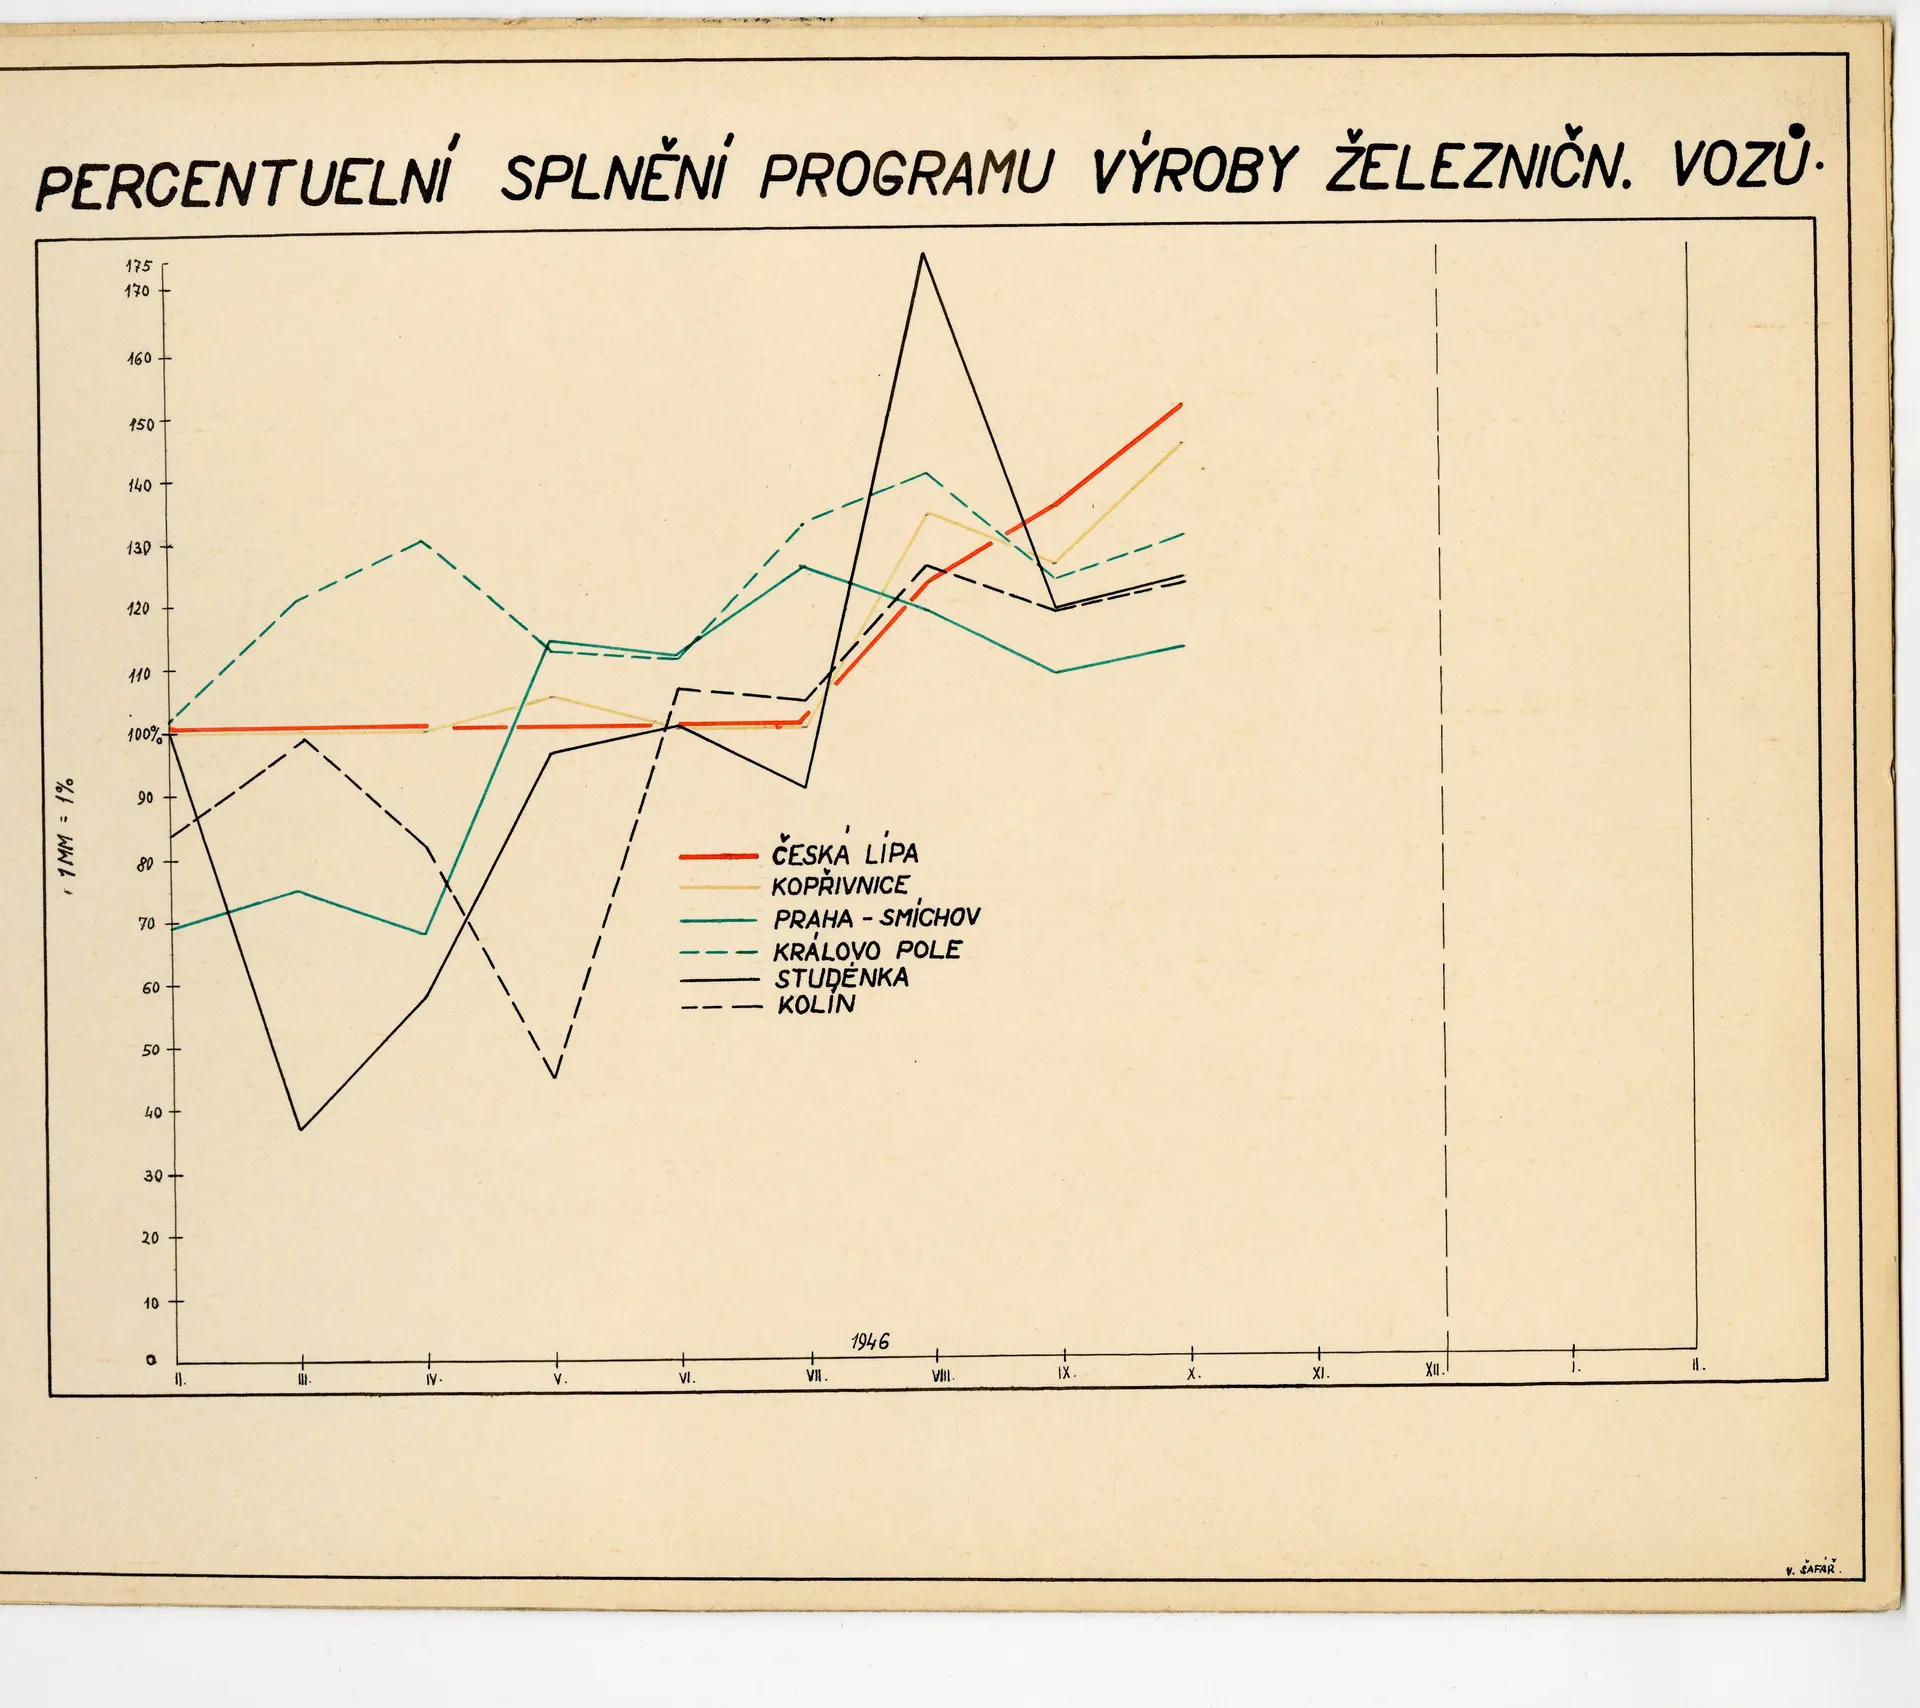 PERCENTUELNÍ SPLNĚNÍ PROGRAMU VÝROBY ŽELEZNIČN. VOZŮ.
175
170
160
150
140
130
120
110
100%
90
80
70
60
50
40
30
20
10
0
1 MM = 1%
ČESKÁ LÍPA
KOPŘIVNICE
PRAHA - SMÍCHOV
KRÁLOVO POLE
STUDÉNKA
KOLÍN
1946
II. III. IV. V. VI. VII. VIII. IX. X. XI. XII. I. II.
V. ŠAFÁŘ.